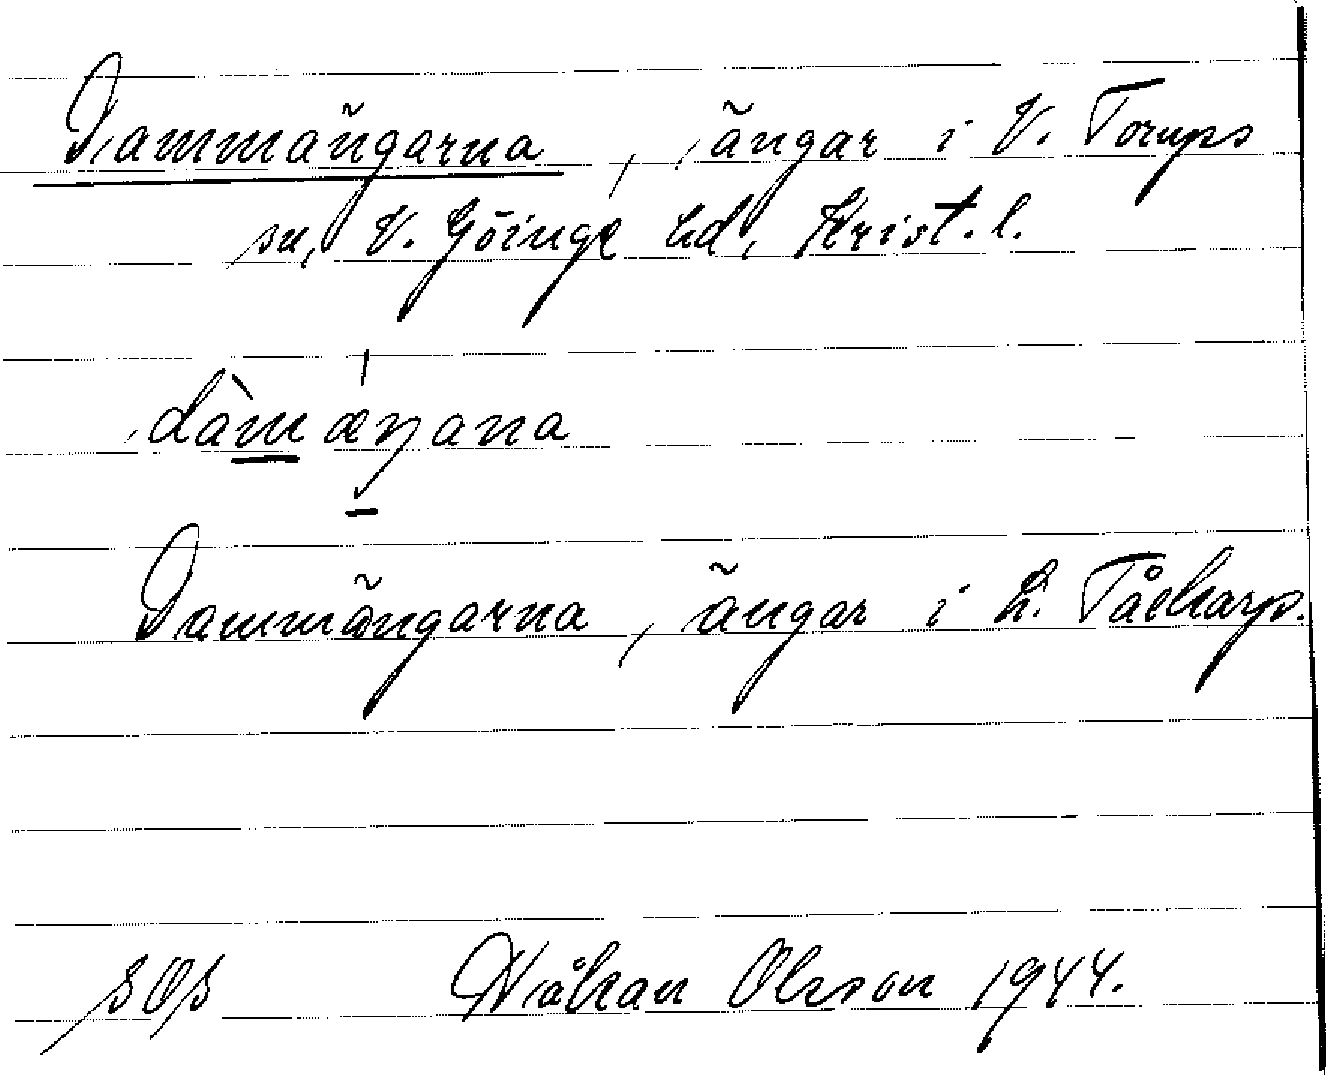 Dammängarna, ängar i V. Torups
sn, V. Göinge hd, Krist. l.
dàmæŋana
Dammängarna, ängar i L. Tåckarp.
SOS Håkan Olsson 1944.